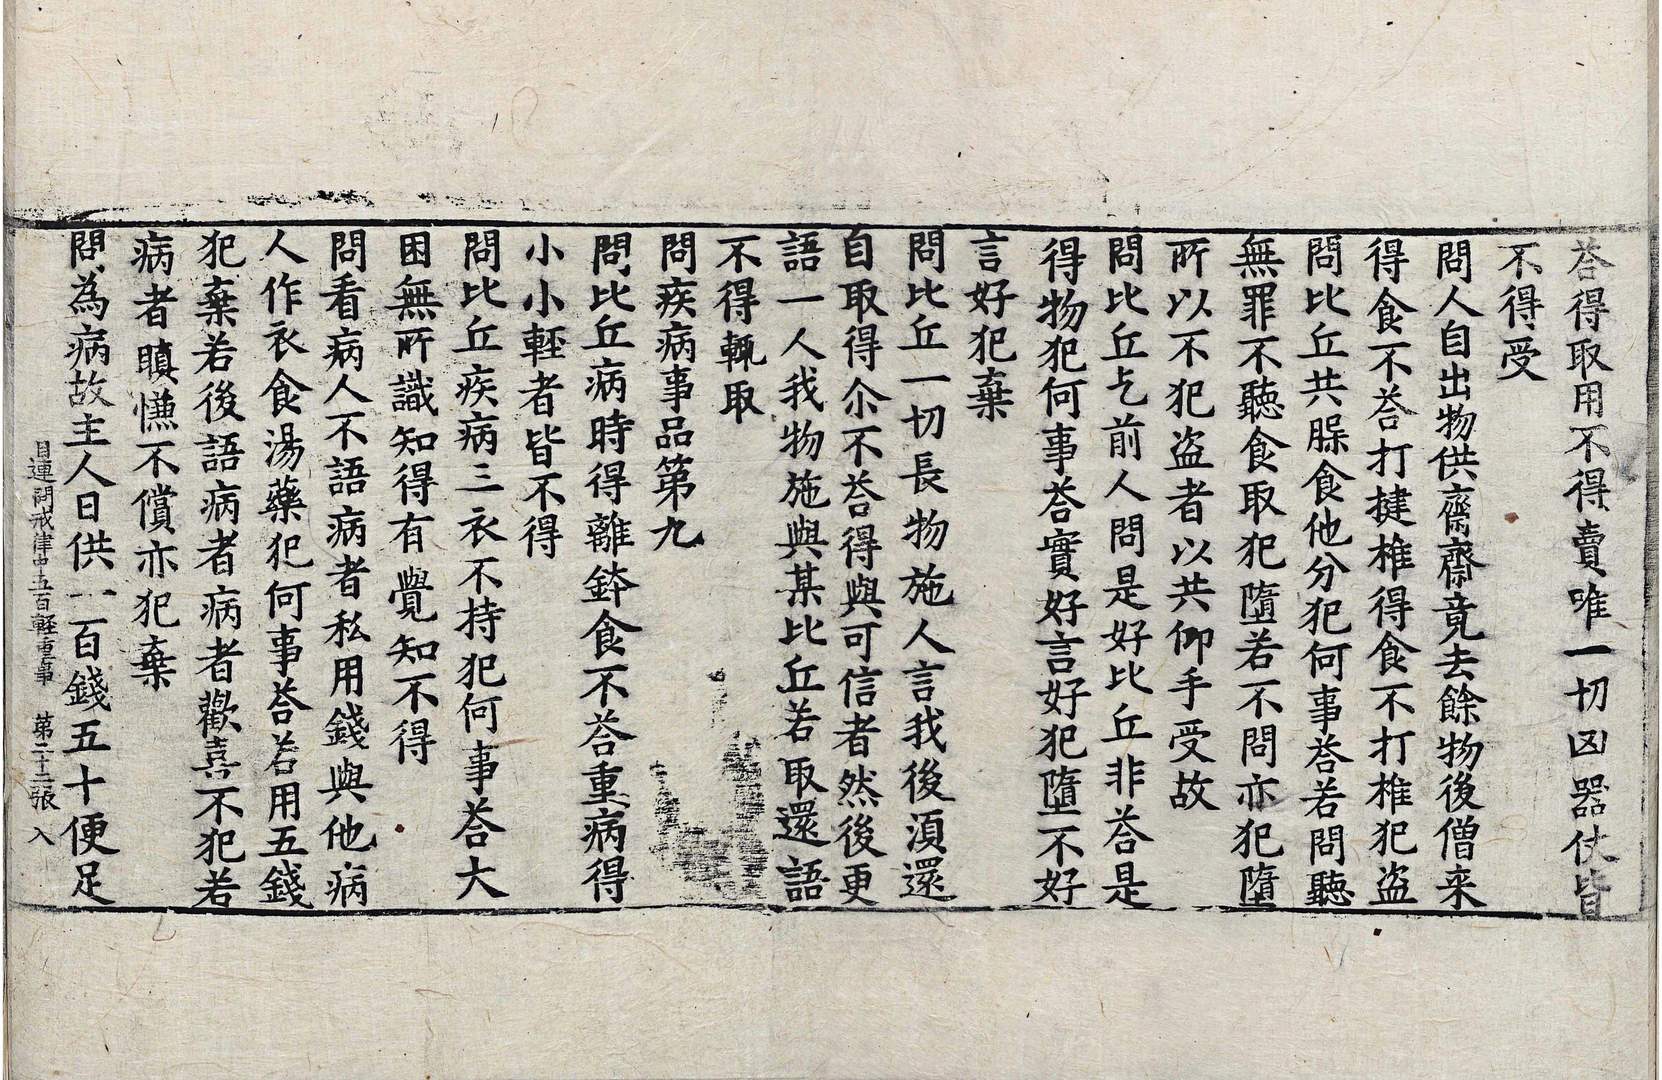 荅得取用不得賣唯一切凶器仗皆
不得受
問人自出物供齋齋竟去餘物後僧来
得食不荅打揵椎得食不打椎犯盗
問比丘共臊食他分犯何事荅若問聽
無罪不聽食取犯墮若不問亦犯墮
所以不犯盗者以共仰手受故
問比丘乞前人問是好比丘非荅是
得物犯何事荅實好言好犯墮不好
言好犯棄
問比丘一切長物施人言我後湏還
自取得尒不荅得與可信者然後更
語一人我物施與某比丘若取還語
不得輒取
問疾病事品第九
問比丘病時得離鉢食不荅重病得
小小輕者皆不得
問比丘疾病三衣不持犯何事荅大
困無所識知得有覺知不得
問看病人不語病者私用錢與他病
人作衣食湯藥犯何事荅若用五錢
犯棄若後語病者病者歡喜不犯若
病者瞋慊不償亦犯棄
問為病故主人日供一百錢五十便足
目連問戒律中五百輕重事 第二十二張 入